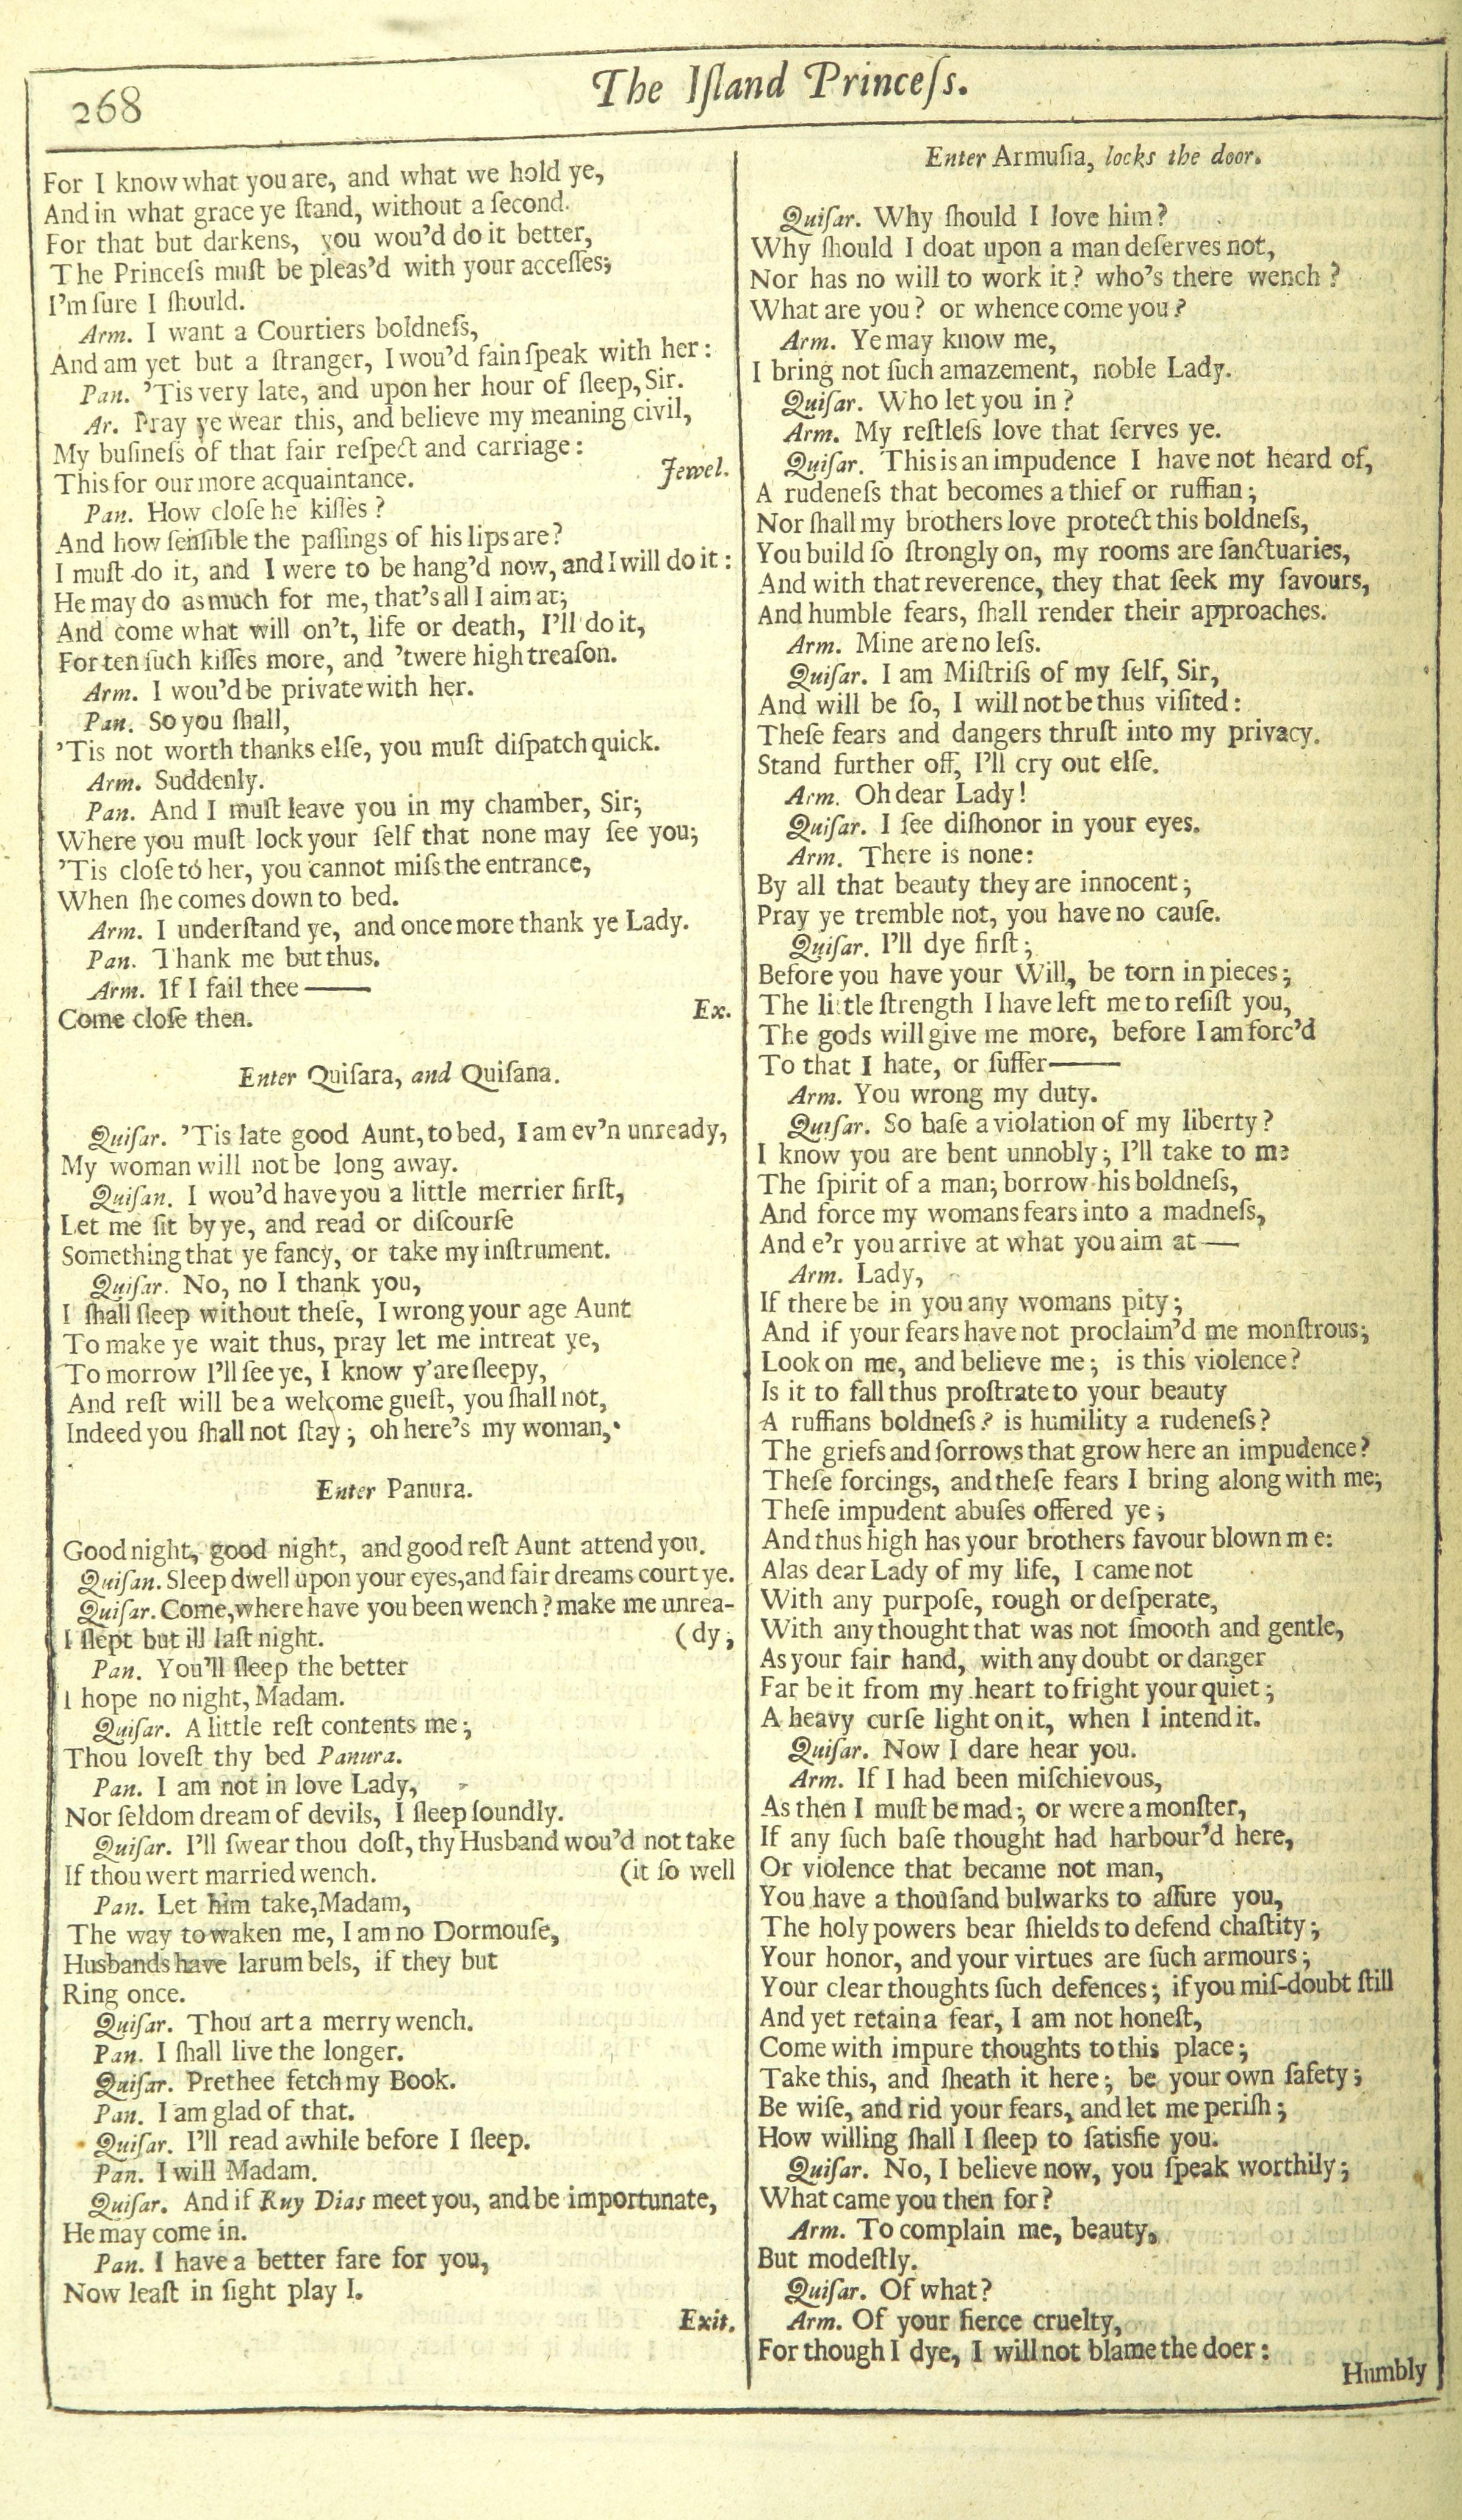 268
The Iſland Princeſs.
For I know what you are, and what we hold ye,
And in what grace ye ſtand, without a ſecond.
For that but darkens, you wou'd do it better,
The Princeſs muſt be pleas'd with your acceſſes;
I'm ſure I ſhould.
Arm. I want a Courtiers boldneſs,
And am yet but a ſtranger, I wou'd fain ſpeak with her:
Pan. 'Tis very late, and upon her hour of ſleep, Sir.
Ar. Pray ye wear this, and believe my meaning civil,
My buſineſs of that fair reſpect and carriage:
This for our more acquaintance. Jewel.
Pan. How cloſe he kiſſes?
And how ſenſible the paſſings of his lips are?
I muſt do it, and I were to be hang'd now, and I will do it:
He may do as much for me, that's all I aim at;
And come what will on't, life or death, I'll do it,
For ten ſuch kiſſes more, and 'twere high treaſon.
Arm. I wou'd be private with her.
Pan. So you ſhall,
'Tis not worth thanks elſe, you muſt diſpatch quick.
Arm. Suddenly.
Pan. And I muſt leave you in my chamber, Sir;
Where you muſt lock your ſelf that none may ſee you;
'Tis cloſe to her, you cannot miſs the entrance,
When ſhe comes down to bed.
Arm. I underſtand ye, and once more thank ye Lady.
Pan. Thank me but thus.
Arm. If I fail thee ——
Come cloſe then. Ex.
Enter Quiſara, and Quiſana.
Quiſar. 'Tis late good Aunt, to bed, I am ev'n unready,
My woman will not be long away.
Quiſan. I wou'd have you a little merrier firſt,
Let me ſit by ye, and read or diſcourſe
Something that ye fancy, or take my inſtrument.
Quiſar. No, no I thank you,
I ſhall ſleep without theſe, I wrong your age Aunt
To make ye wait thus, pray let me intreat ye,
To morrow I'll ſee ye, I know y'are ſleepy,
And reſt will be a welcome gueſt, you ſhall not,
Indeed you ſhall not ſtay; oh here's my woman,
Enter Panura.
Good night, good night, and good reſt Aunt attend you.
Quiſan. Sleep dwell upon your eyes, and fair dreams court ye.
Quiſar. Come, where have you been wench? make me unrea-
I ſlept but ill laſt night. (dy;
Pan. You'll ſleep the better
I hope no night, Madam.
Quiſar. A little reſt contents me;
Thou loveſt thy bed Panura.
Pan. I am not in love Lady,
Nor ſeldom dream of devils, I ſleep ſoundly.
Quiſar. I'll ſwear thou doſt, thy Husband wou'd not take
If thou wert married wench. (it ſo well
Pan. Let him take, Madam,
The way to waken me, I am no Dormouſe,
Husbands have larum bels, if they but
Ring once.
Quiſar. Thou art a merry wench.
Pan. I ſhall live the longer.
Quiſar. Prethee fetch my Book.
Pan. I am glad of that.
Quiſar. I'll read awhile before I ſleep.
Pan. I will Madam.
Quiſar. And if Ruy Dias meet you, and be importunate,
He may come in.
Pan. I have a better fare for you,
Now leaſt in ſight play I.
Exit.
Enter Armuſia, locks the door.
Quiſar. Why ſhould I love him?
Why ſhould I doat upon a man deſerves not,
Nor has no will to work it? who's there wench?
What are you? or whence come you?
Arm. Ye may know me,
I bring not ſuch amazement, noble Lady.
Quiſar. Who let you in?
Arm. My reſtleſs love that ſerves ye.
Quiſar. This is an impudence I have not heard of,
A rudeneſs that becomes a thief or ruffian;
Nor ſhall my brothers love protect this boldneſs,
You build ſo ſtrongly on, my rooms are ſanctuaries,
And with that reverence, they that ſeek my favours,
And humble fears, ſhall render their approaches.
Arm. Mine are no leſs.
Quiſar. I am Miſtriſs of my ſelf, Sir,
And will be ſo, I will not be thus viſited:
Theſe fears and dangers thruſt into my privacy.
Stand further off, I'll cry out elſe.
Arm. Oh dear Lady!
Quiſar. I ſee diſhonor in your eyes.
Arm. There is none:
By all that beauty they are innocent;
Pray ye tremble not, you have no cauſe.
Quiſar. I'll dye firſt;
Before you have your Will, be torn in pieces;
The little ſtrength I have left me to reſiſt you,
The gods will give me more, before I am forc'd
To that I hate, or ſuffer——
Arm. You wrong my duty.
Quiſar. So baſe a violation of my liberty?
I know you are bent unnobly; I'll take to me
The ſpirit of a man; borrow his boldneſs,
And force my womans fears into a madneſs,
And e'r you arrive at what you aim at——
Arm. Lady,
If there be in you any womans pity;
And if your fears have not proclaim'd me monſtrous;
Look on me, and believe me; is this violence?
Is it to fall thus proſtrate to your beauty
A ruffians boldneſs? is humility a rudeneſs?
The griefs and ſorrows that grow here an impudence?
Theſe forcings, and theſe fears I bring along with me;
Theſe impudent abuſes offered ye;
And thus high has your brothers favour blown me:
Alas dear Lady of my life, I came not
With any purpoſe, rough or deſperate,
With any thought that was not ſmooth and gentle,
As your fair hand, with any doubt or danger
Far be it from my heart to fright your quiet;
A heavy curſe light on it, when I intend it.
Quiſar. Now I dare hear you.
Arm. If I had been miſchievous,
As then I muſt be mad; or were a monſter,
If any ſuch baſe thought had harbour'd here,
Or violence that became not man,
You have a thouſand bulwarks to aſſure you,
The holy powers bear ſhields to defend chaſtity;
Your honor, and your virtues are ſuch armours;
Your clear thoughts ſuch defences; if you miſ-doubt ſtill
And yet retain a fear, I am not honeſt,
Come with impure thoughts to this place;
Take this, and ſheath it here; be your own ſafety;
Be wiſe, and rid your fears, and let me periſh;
How willing ſhall I ſleep to ſatisfie you.
Quiſar. No, I believe now, you ſpeak worthily;
What came you then for?
Arm. To complain me, beauty,
But modeſtly.
Quiſar. Of what?
Arm. Of your fierce cruelty,
For though I dye, I will not blame the doer:
Humbly